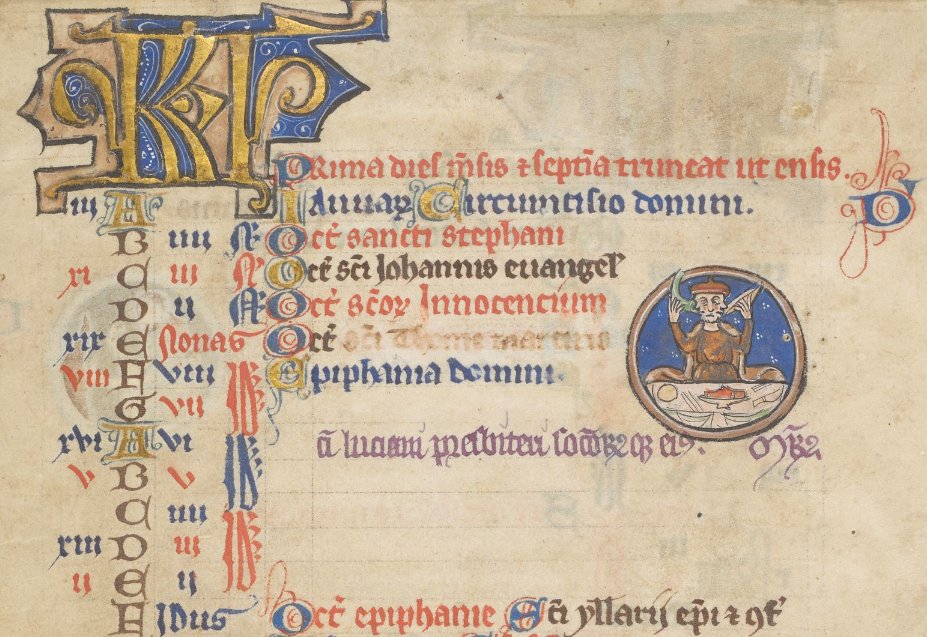 KL Prima dies mensis et septima truncat ut ensis. D
iii A Ianuarius Circumcisio domini.
B iiii N Oct sancti stephani
xi C iii N Oct sci Johannis euangel
D ii N Oct scor Innocencium
xix E Nonas Oct sci Thome martiris
viii F viii Id Epiphania domini.
G vii Id
xvi A vi Id ci luciani presbiteri sociorumque eius.
v B v Id
C iiii Id
xiii D iii Id
ii E ii Id
F Idus Oct epiphanie Sci yllarii epi et